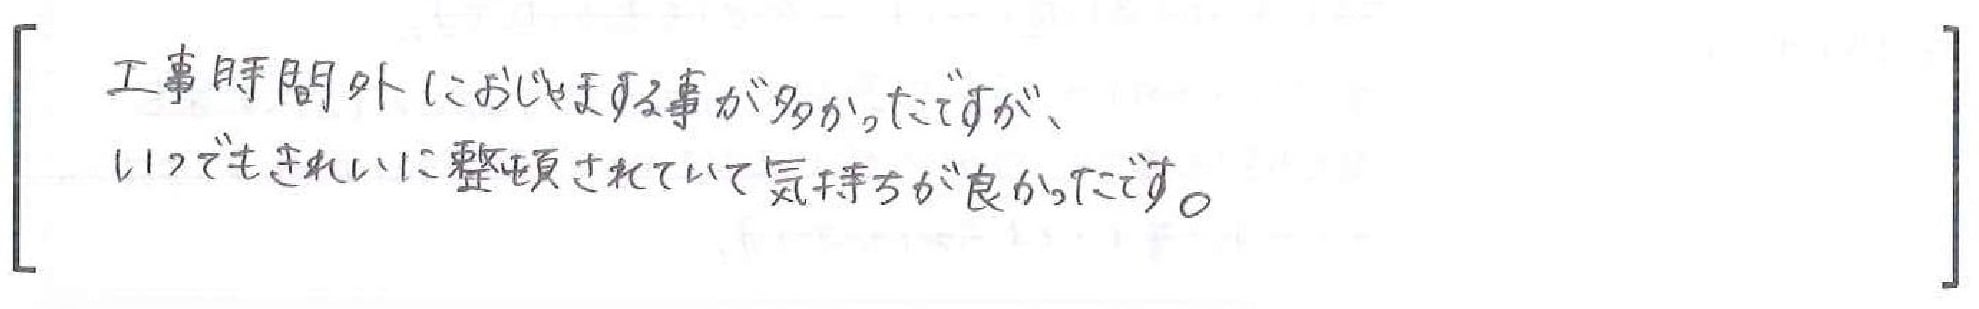 工事時間外におじゃまする事が多かったですが、
いつでもきれいに整頓されていて気持ちが良かったです。